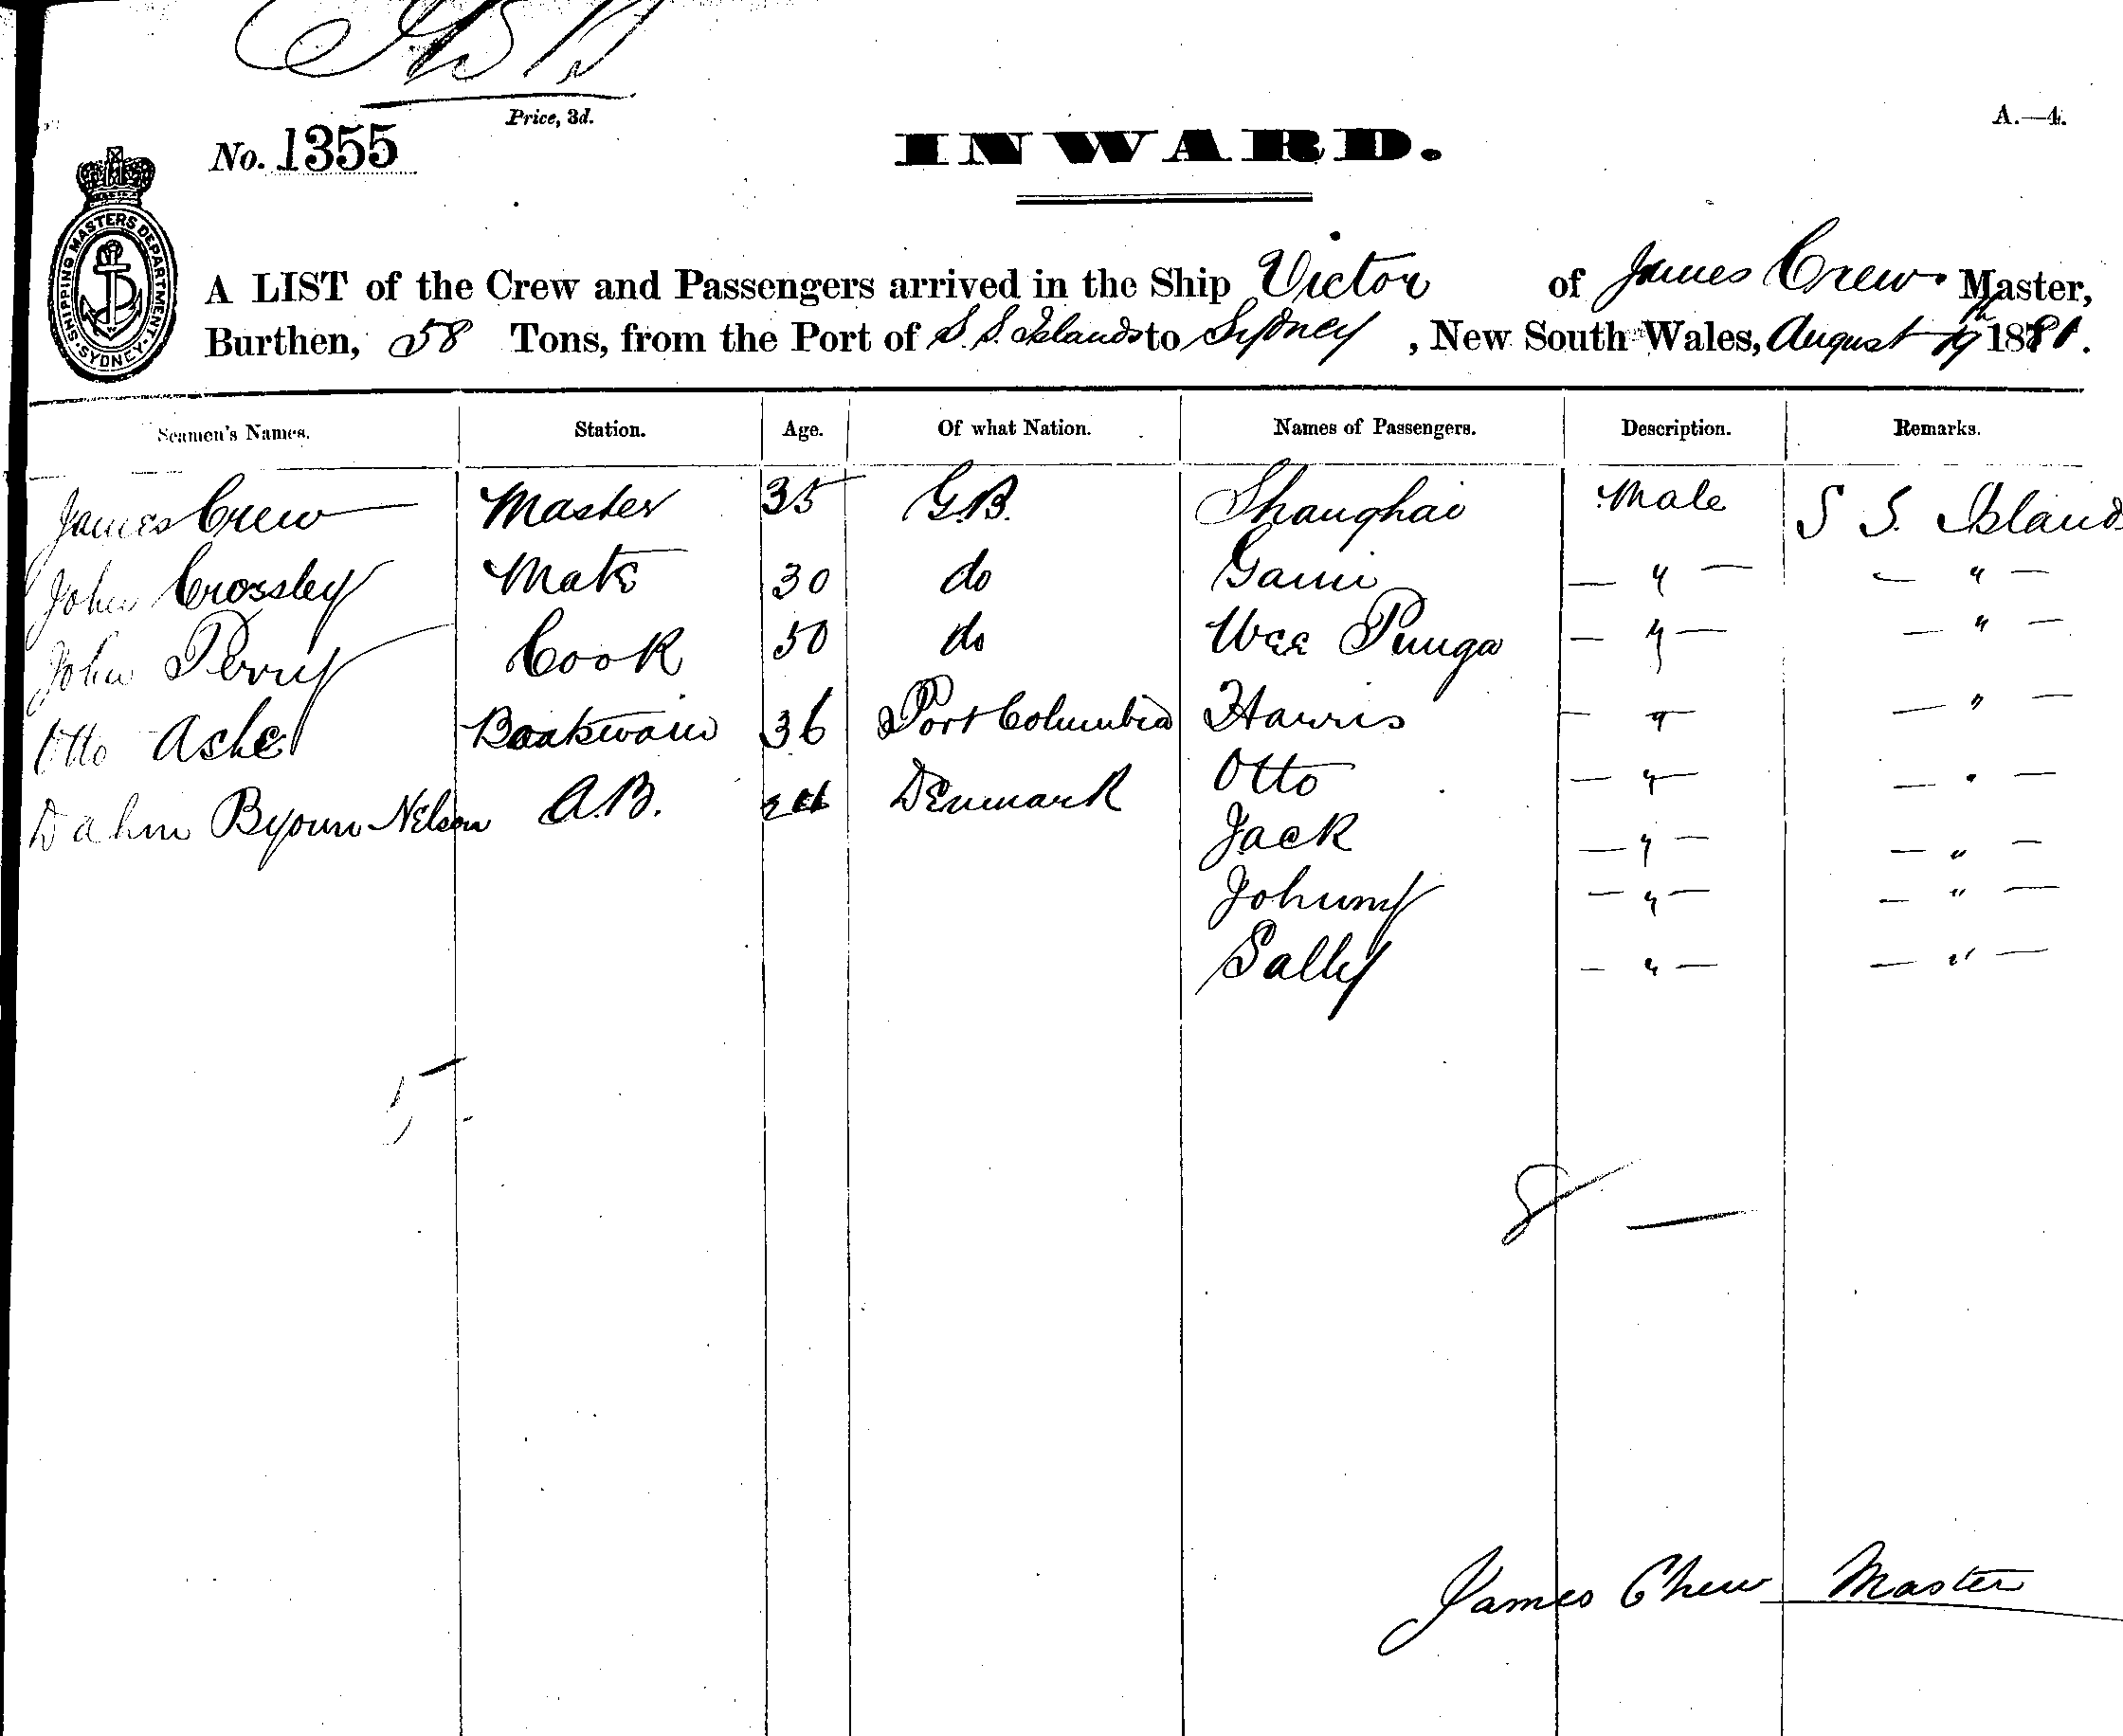 Price, 3d.
A.—4.
No. 1355
INWARD.
SHIPPING MASTERS DEPARTMENT · SYDNEY ·
A LIST of the Crew and Passengers arrived in the Ship Victor of James Crew Master,
Burthen, 58 Tons, from the Port of S. S. Islands to Sydney, New South Wales, August 19th 1881.
Seamen's Names. Station. Age. Of what Nation. Names of Passengers. Description. Remarks.
James Crew Master 35 G.B. Shanghai Male S S. Island
John Crossley Mate 30 do — " — — " —
John Perry Cook 50 do Wee Punga — " — — " —
Otto Ashe 36 Port Columbia Harris — " — — " —
Dahm Byoun Nelson A.B. Denmark Otto — " — — " —
Jack — " — — " —
Johnny — " — — " —
Sally — " — — " —
5
8
James Chew Master